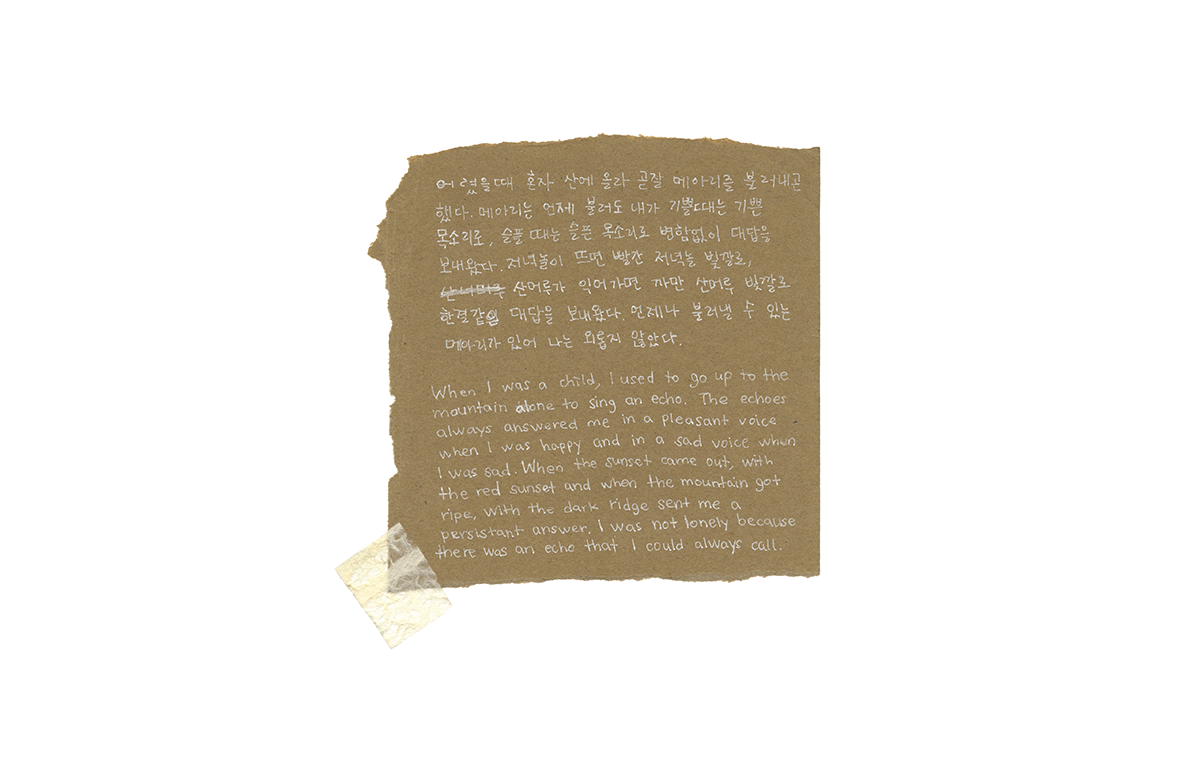 어렸을때 혼자 산에 올라 곧잘 메아리를 불러내곤
했다. 메아리는 언제 불러도 내가 기쁠때는 기쁜
목소리로, 슬플 때는 슬픈 목소리로 변함없이 대답을
보내왔다. 저녁놀이 뜨면 빨간 저녁놀 빛깔로,
산머루가 익어가면 까만 산머루 빛깔로
한결같이 대답을 보내왔다. 언제나 불러낼 수 있는
메아리가 있어 나는 외롭지 않았다.
When I was a child, I used to go up to the
mountain alone to sing an echo. The echoes
always answered me in a pleasant voice
when I was happy and in a sad voice when
I was sad. When the sunset came out, with
the red sunset and when the mountain got
ripe, with the dark ridge sent me a
persistant answer. I was not lonely because
there was an echo that I could always call.